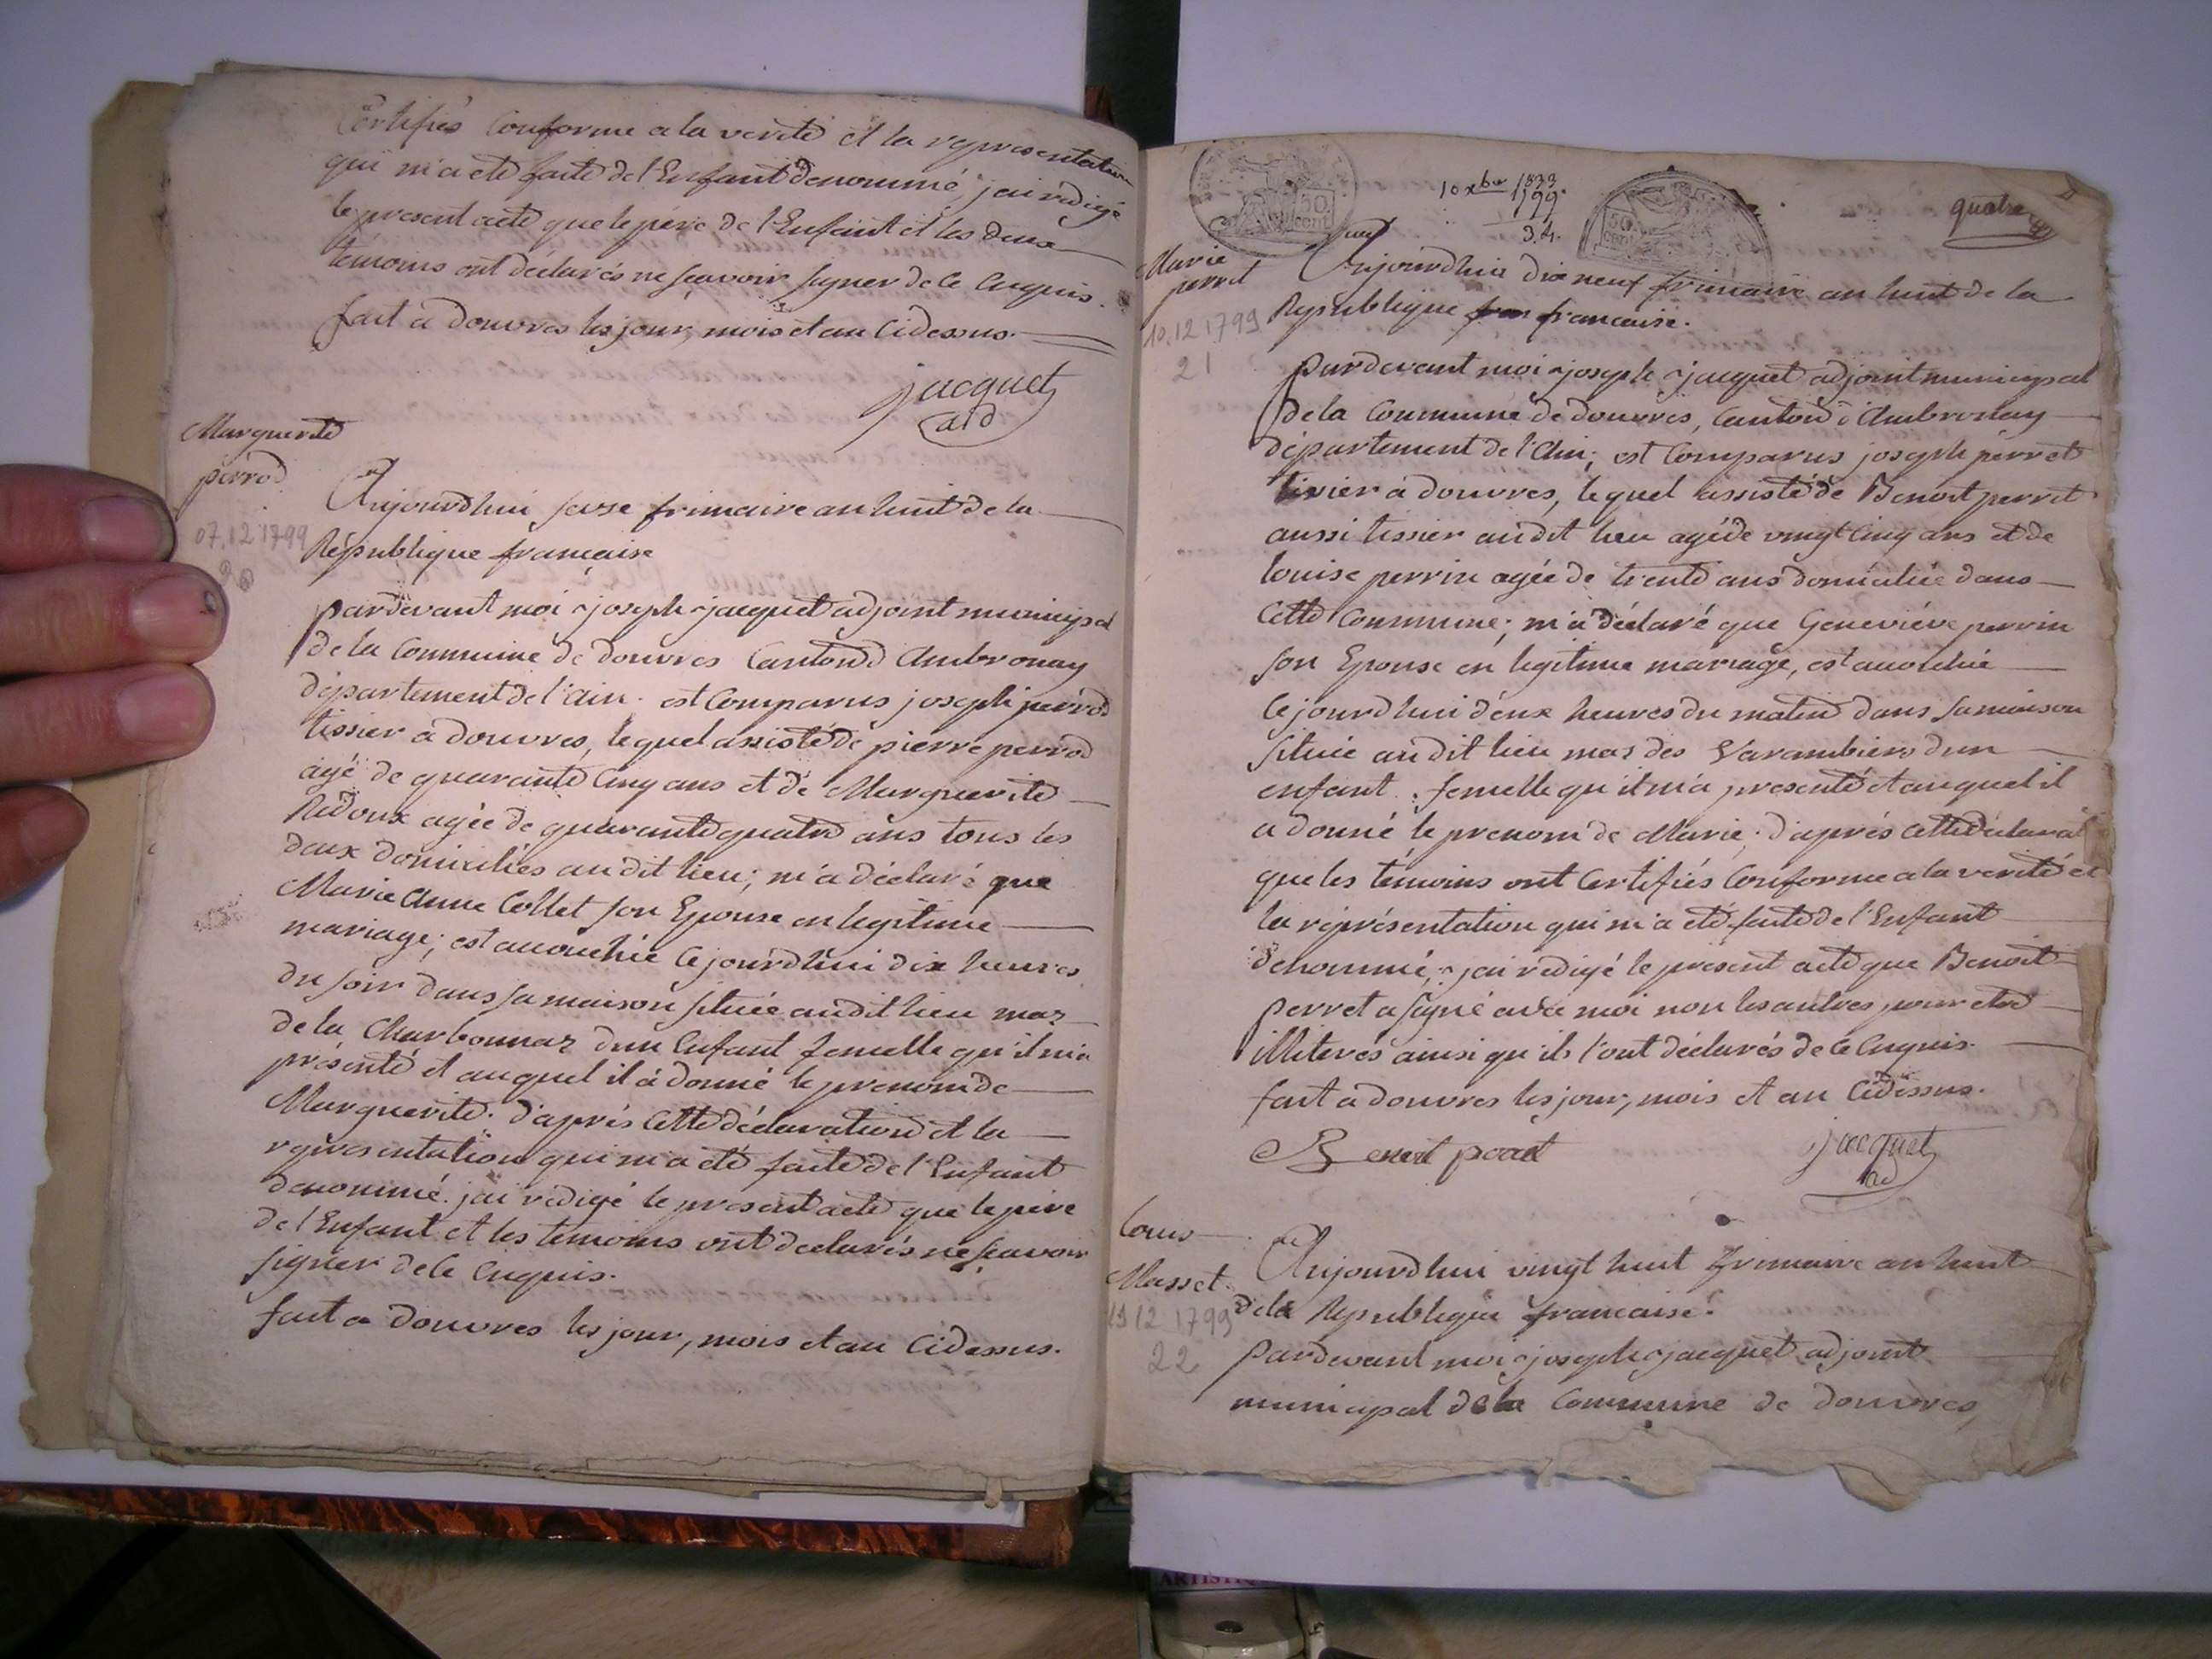 Certifiés Conforme a la verité et la representation
qui m'a eté faite de l'Enfant denommé, j'ai redigé
le present acte que le père de l'Enfant et les deux
temoins ont déclarés ne sçavoir signer de ce Enquis.
fait a douvres les jour, mois et an Cidessus.
jacquet
ad
Marguerite
perrod
07.12 1799
Aujourdhui seise frimaire an huit de la
République francaise
pardevant moi joseph jacquet adjoint municipal
de la Commune de douvres Canton d'Ambronay
département de l'ain. est Comparus joseph perrod
tissier a douvres, lequel assisté de pierre perrod
agé de quarante Cinq ans et de Marguerite
Ridoux agée de quarante quatre ans tous les
deux domiciliés audit lieu; m'a déclaré que
Marie Anne Collet son Epouse en legitime
mariage; est accouchée Cejourdhui dix heures
du soir dans sa maison située audit lieu mas
de la Charbonnaz dun Enfant femelle qu'il m'a
présenté et auquel il a donné le prenom de
Marguerite. d'après Cette déclaration et la
representation qui m'a eté faite de l'Enfant
denommé. j'ai redigé le present acte que le père
de l'Enfant et les temoins ont declarés ne sçavoir
signer de Ce Enquis.
fait a Douvres les jour, mois et an Cidessus.
50
cent
10 xbre 1833
1799
34.
50
cent
quatre
Marie
perret
10.12 1799
21
Aujourdhui dix neuf frimaire an huit de la
Republique fran francaise.
pardevant moi joseph jacquet adjoint municipal
de la Commune de douvres, Canton d'Ambronay
département de l'Ain; est Comparus joseph perret
tissier a douvres, lequel assisté de Benoit perret
aussi tissier audit lieu agé de vingt Cinq ans et de
louise perrin agée de trente ans domiciliée dans
Cette Commune; m'a déclaré que Geneviéve perrin
son Epouse en legitime mariage, est accouchée
Cejourdhui deux heures du matin dans sa maison
située audit lieu mas des Varambiers dun
enfant femelle qu'il m'a presenté et auquel il
a donné le prenom de Marie; d'après cette déclarat
que les témoins ont Certifiés Conforme a la verité et
la réprésentation qui m'a eté faite de l'Enfant
denommé, j'ai redigé le present acte que Benoit
perret a signé avec moi non les autres pour etre
illiterés ainsi qu'ils l'ont déclarés de Ce Enquis.
fait a douvres les jour, mois et an Cidessus.
Benoit peret
jacquet
ad
Louis
Masset
19 12 1799
22
Aujourdhui vingt huit frimaire an huit
de la Republique francaise.
pardevant moi joseph jacquet adjoint
municipal de la Commune de Douvres,